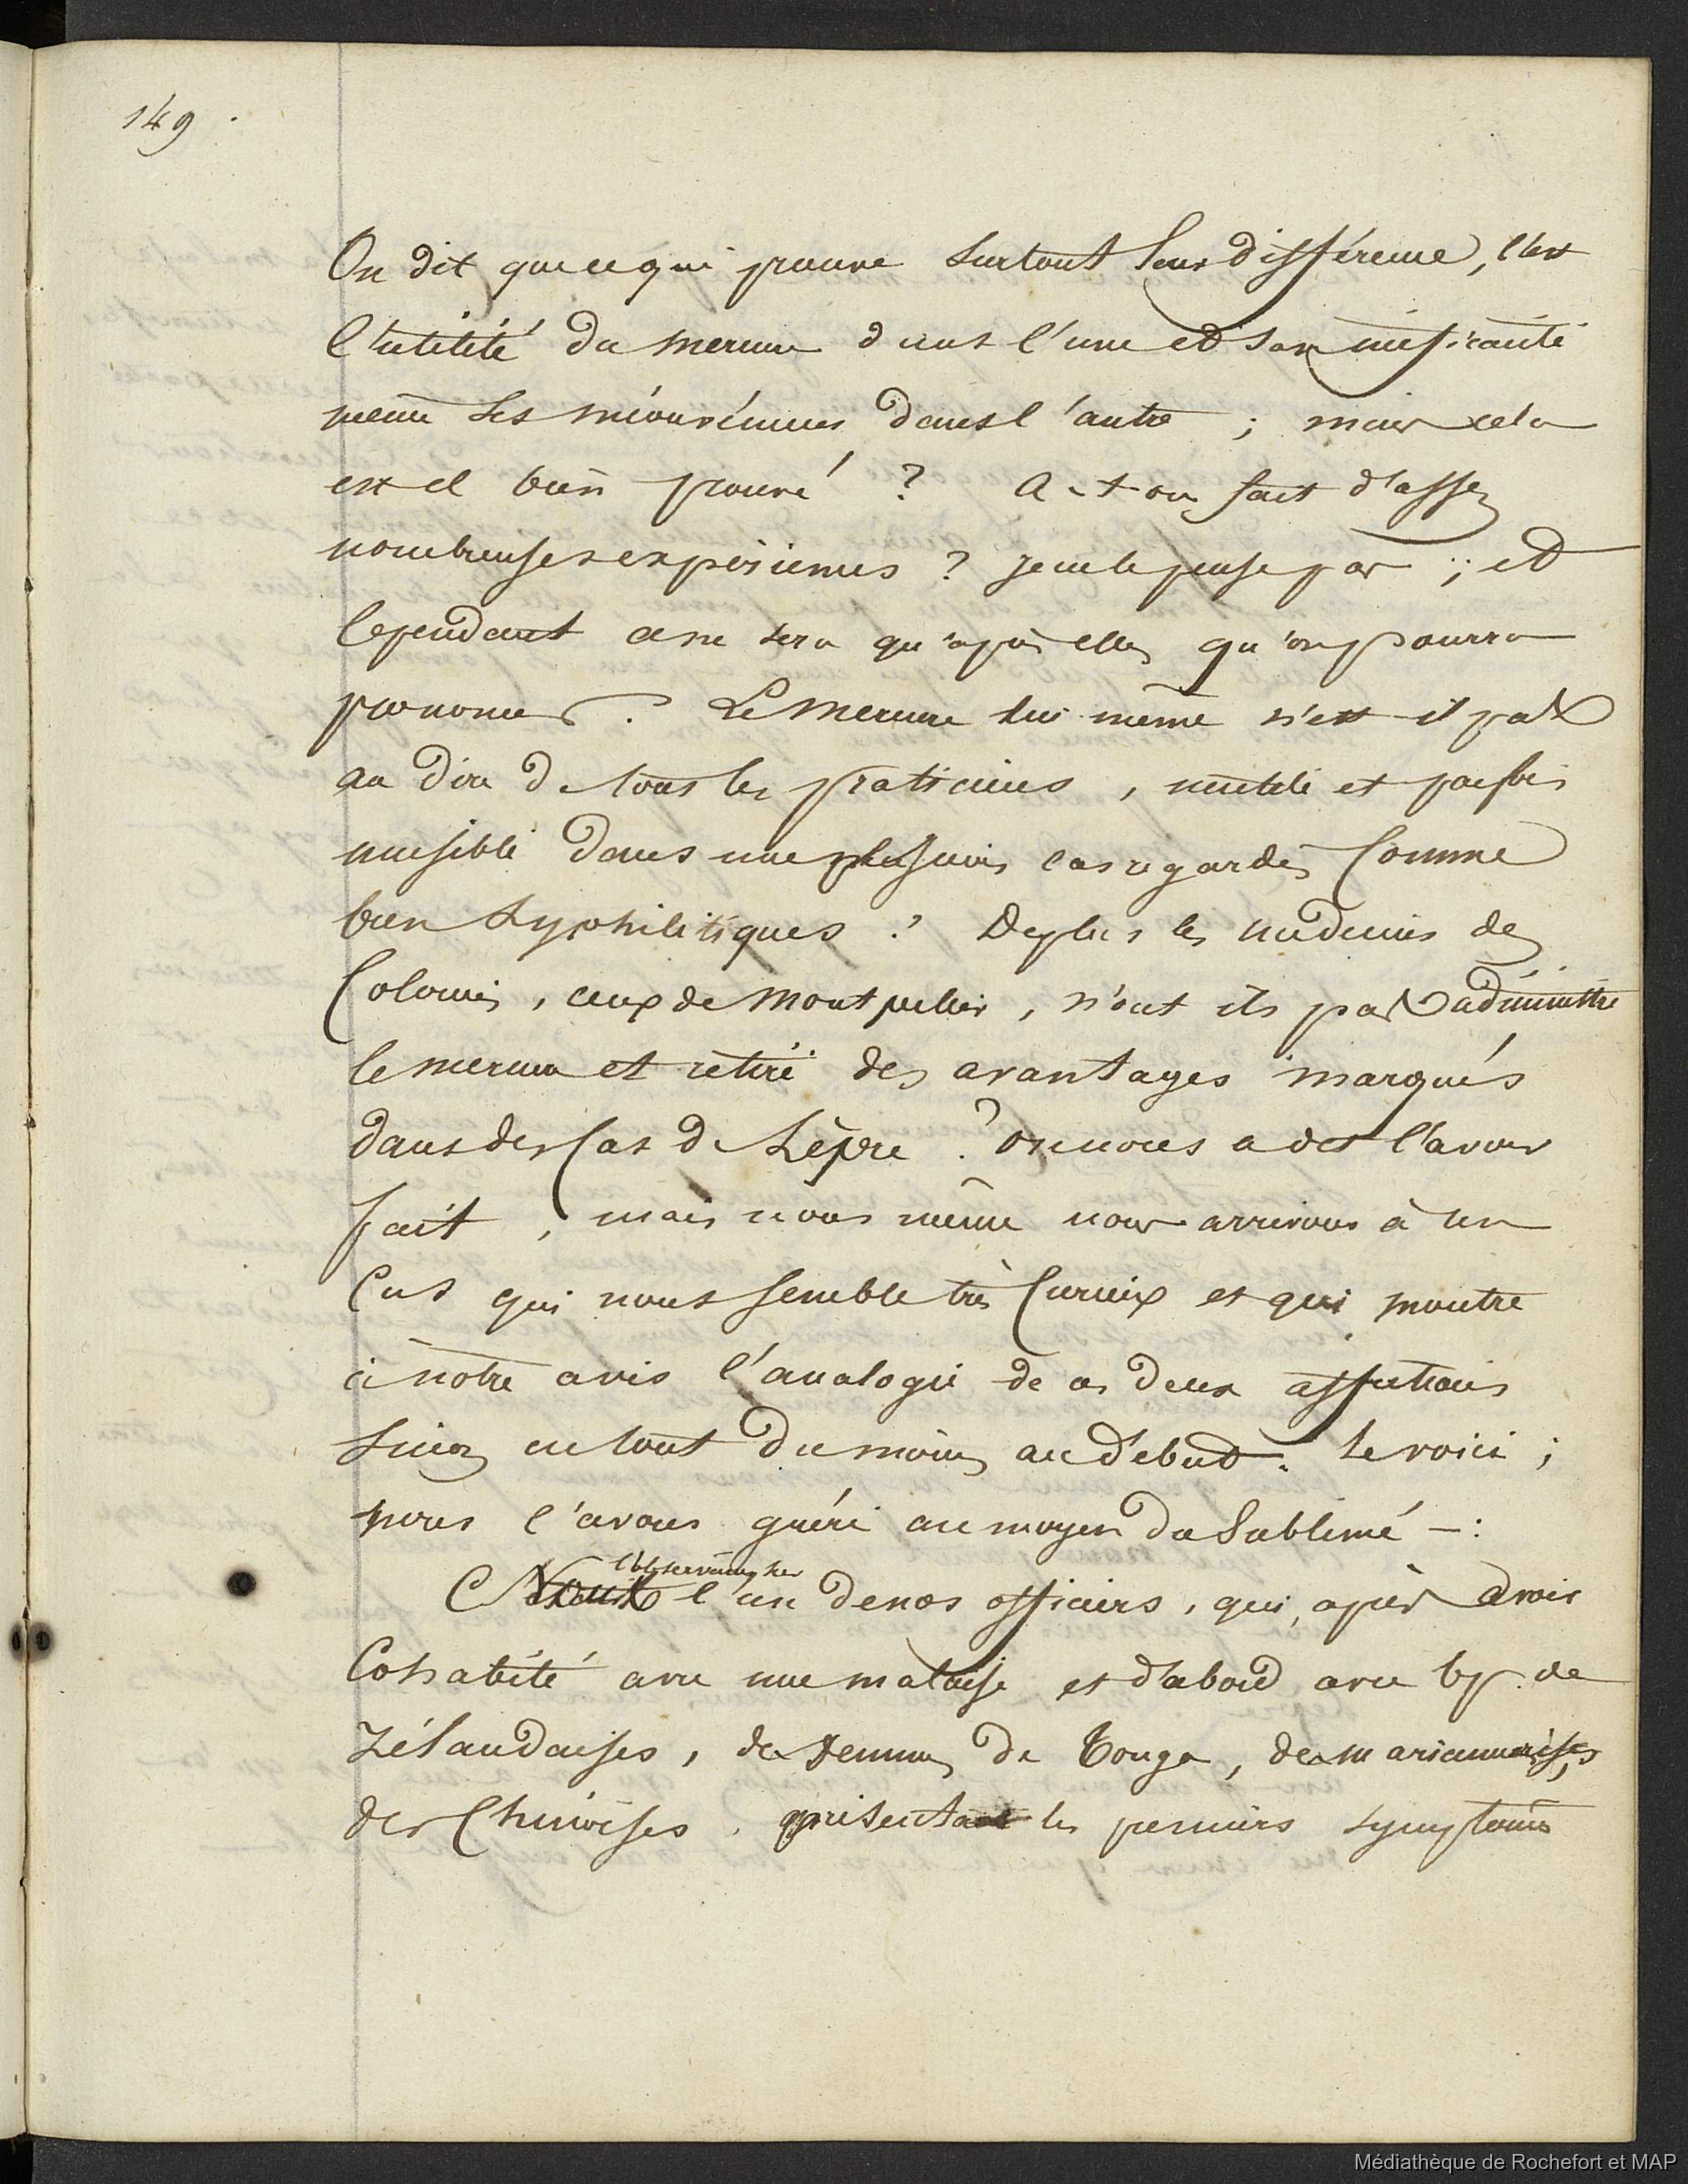 149.
On dit que ce qui prouve surtout leur différence, c'est
l'utilité du mercure dans l'une et son inefficacité
même ses inconvéniens dans l'autre ; mais cela
est-il bien prouvé ? A-t-on fait d'assez
nombreuses expériences ? Je ne le pense pas ; et
Cependant ce ne sera qu'après elles qu'on pourra
prononcer. Le mercure lui même n'est-il pas
au dire de tous les praticiens, inutile et parfois
nuisible dans plusieurs cas regardés comme
bien syphilitiques ? De plus les médecins des
Colonies, ceux de Montpellier, n'ont ils pas administré
le mercure et retiré des avantages marqués
dans des cas de Lèpre ? on nous a dit l'avoir
fait, mais nous même nous arrivons à un
Cas qui nous semble très curieux et qui montre
à notre avis l'analogie de ces deux affections
sinon en tout du moins au début. Le voici ;
nous l'avons guéri au moyen du sublimé —:
l'un de nos officiers, qui, après avoir
Cohabité avec une malaise et d'abord avec bp. de
Zélandaises, de femmes de Tonga, de mariannaises,
des Chinoises, présenta les premiers symptômes
Médiathèque de Rochefort et MAP